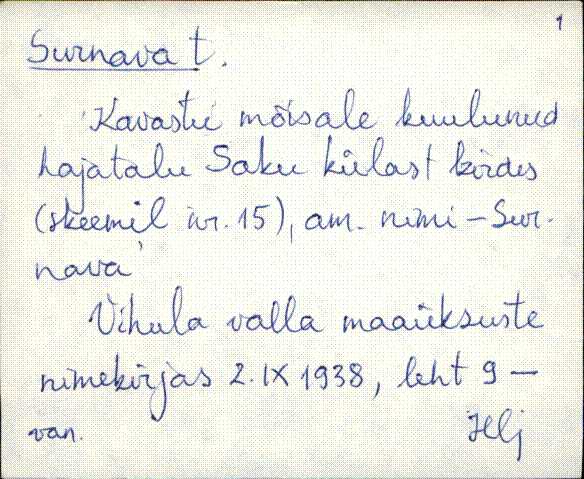 1
Surnava t.
Kavastu mõisale kuulunud
hajatalu Saku külast kirdes
(skeemil nr. 15), am. nimi – Sur-
nava
Vihula valla maaüksuste
nimekirjas 2.IX 1938, leht 9 –
van.